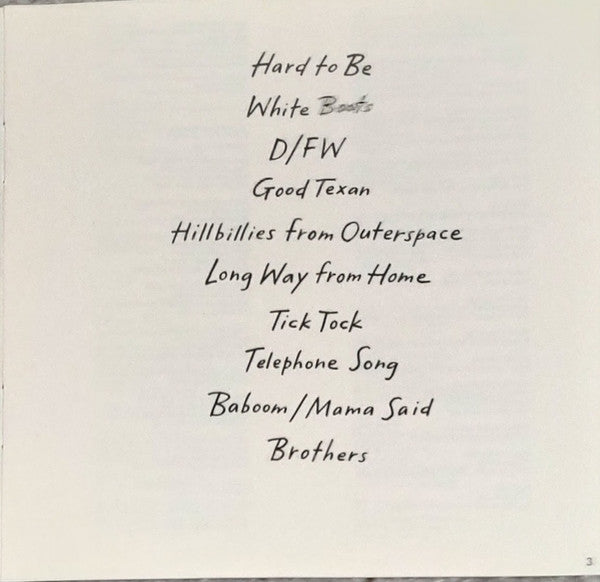 Hard to Be
White
D/FW
Good Texan
Hillbillies from Outerspace
Long Way from Home
Tick Tock
Telephone Song
Baboom/Mama Said
Brothers
3